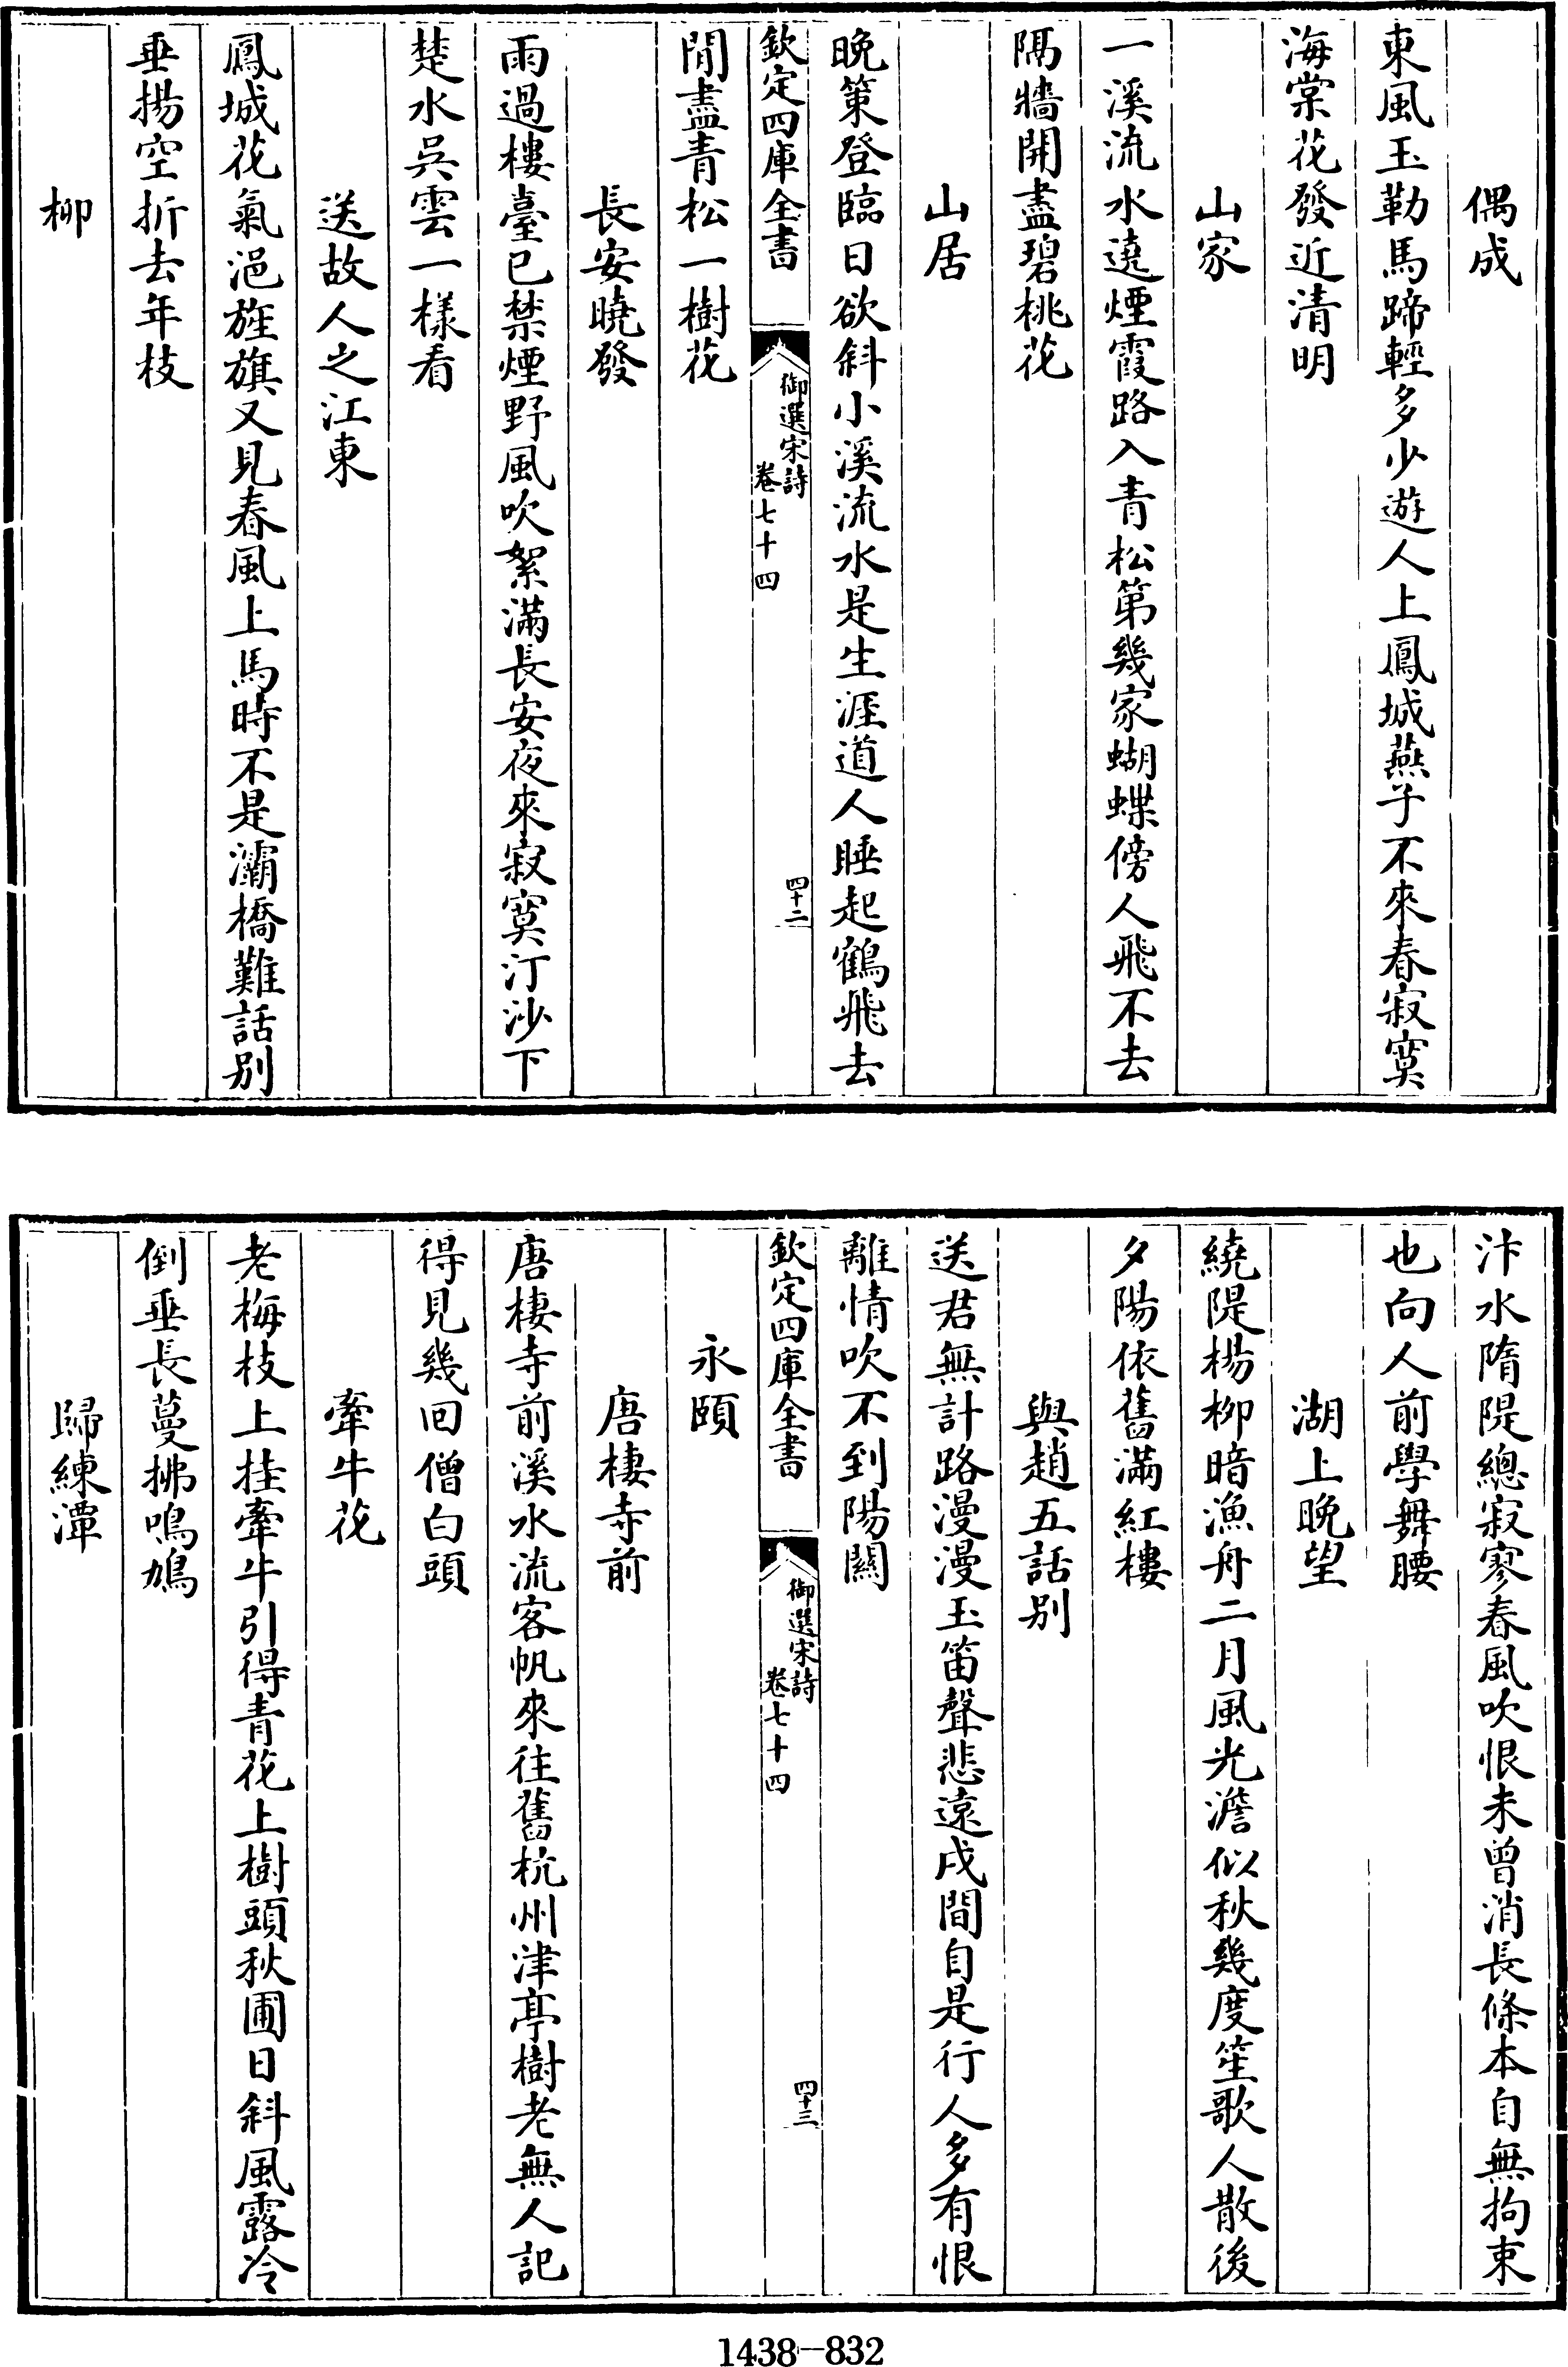 偶成
東風玉勒馬蹄輕多少遊人上鳳城燕子不來春寂寞
海棠花發近清明
山家
一溪流水遶煙霞路入青松第幾家蝴蝶傍人飛不去
隔牆開盡碧桃花
山居
晚策登臨日欲斜小溪流水是生涯道人睡起鶴飛去
欽定四庫全書
御選宋詩
卷七十四
四十二
閒盡青松一樹花
長安曉發
雨過樓臺已禁煙野風吹絮滿長安夜來寂寞汀沙下
楚水吳雲一樣看
送故人之江東
鳳城花氣浥旌旗又見春風上馬時不是灞橋難話別
垂揚空折去年枝
柳
汴水隋隄總寂寥春風吹恨未曾消長條本自無拘束
也向人前學舞腰
湖上晚望
繞隄楊柳暗漁舟二月風光澹似秋幾度笙歌人散後
夕陽依舊滿紅樓
與趙五話別
送君無計路漫漫玉笛聲悲遠戍間自是行人多有恨
離情吹不到陽關
欽定四庫全書
御選宋詩
卷七十四
四十三
永頤
唐棲寺前
唐棲寺前溪水流客帆來往舊杭州津亭樹老無人記
得見幾回僧白頭
牽牛花
老梅枝上挂牽牛引得青花上樹頭秋圃日斜風露冷
倒垂長蔓拂鳴鳩
歸練潭
1438—832